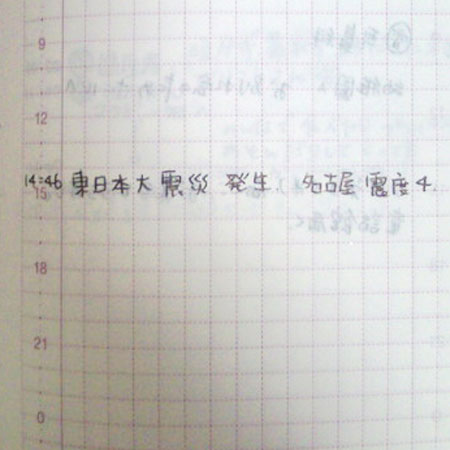 9
12
14:46 東日本大震災 発生、 名古屋 震度4.
15
18
21
0